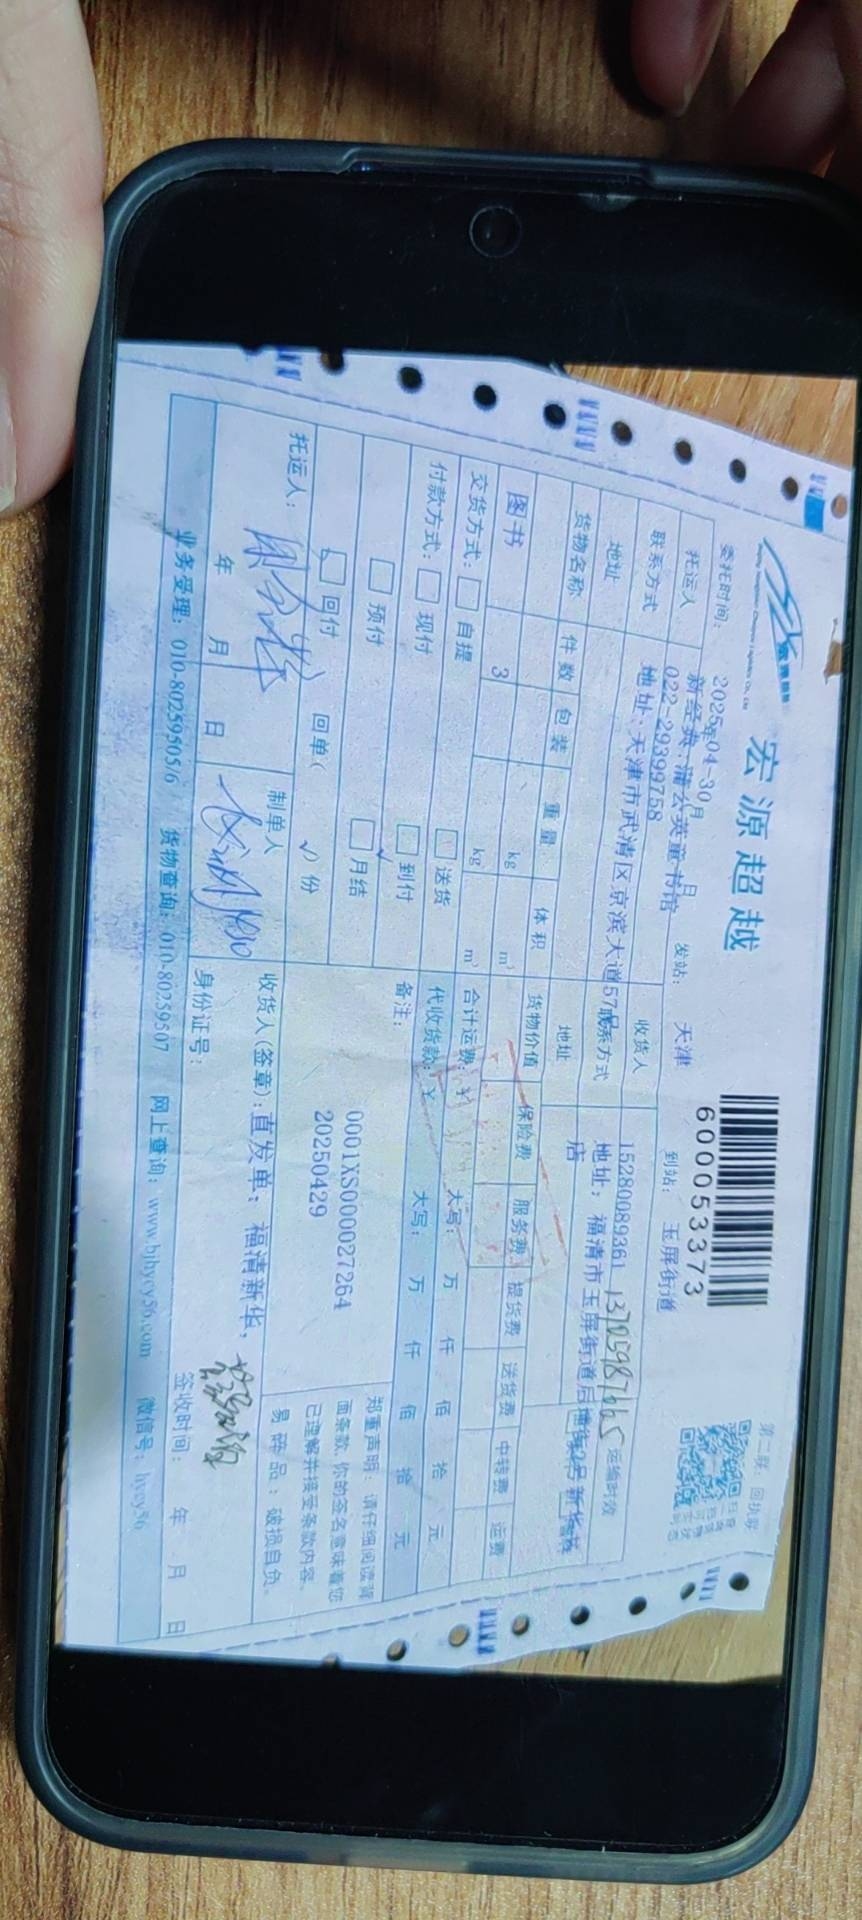 宏源超越
第二联：回执联
600053373
委托时间： 2025年04-30月 日 发站： 天津 到站： 玉屏街道
托运人 新经典.蒲公英童书馆 收货人
联系方式 022-29399758 联系方式 15280089361 运输时效
地址 地址：天津市武清区京滨大道57号 地址 地址：福清市玉屏街道后 新华书
店
货物名称 件数 包装 重量 体积 货物价值 保险费 服务费 提货费 送货费 中转费 运费
图书 3 kg m³
kg m³
交货方式： 自提 送货 合计运费：¥ 大写： 万 仟 佰 拾 元
付款方式： 现付 到付 代收货款：¥ 大写： 万 仟 佰 拾 元
预付 月结 备注：
回付 回单( √ )份
0001XS000027264
20250429
郑重声明：请仔细阅读背
面条款，你的签名意味着您
已理解并接受条款内容。
易碎品：破损自负。
托运人： 制单人 收货人(签章)：直发单：福清新华,
年 月 日 身份证号： 签收时间： 年 月 日
业务受理：010-80259505/6 货物查询：010-80259507 网上查询：www.bjhycy56.com 微信号：hycy56